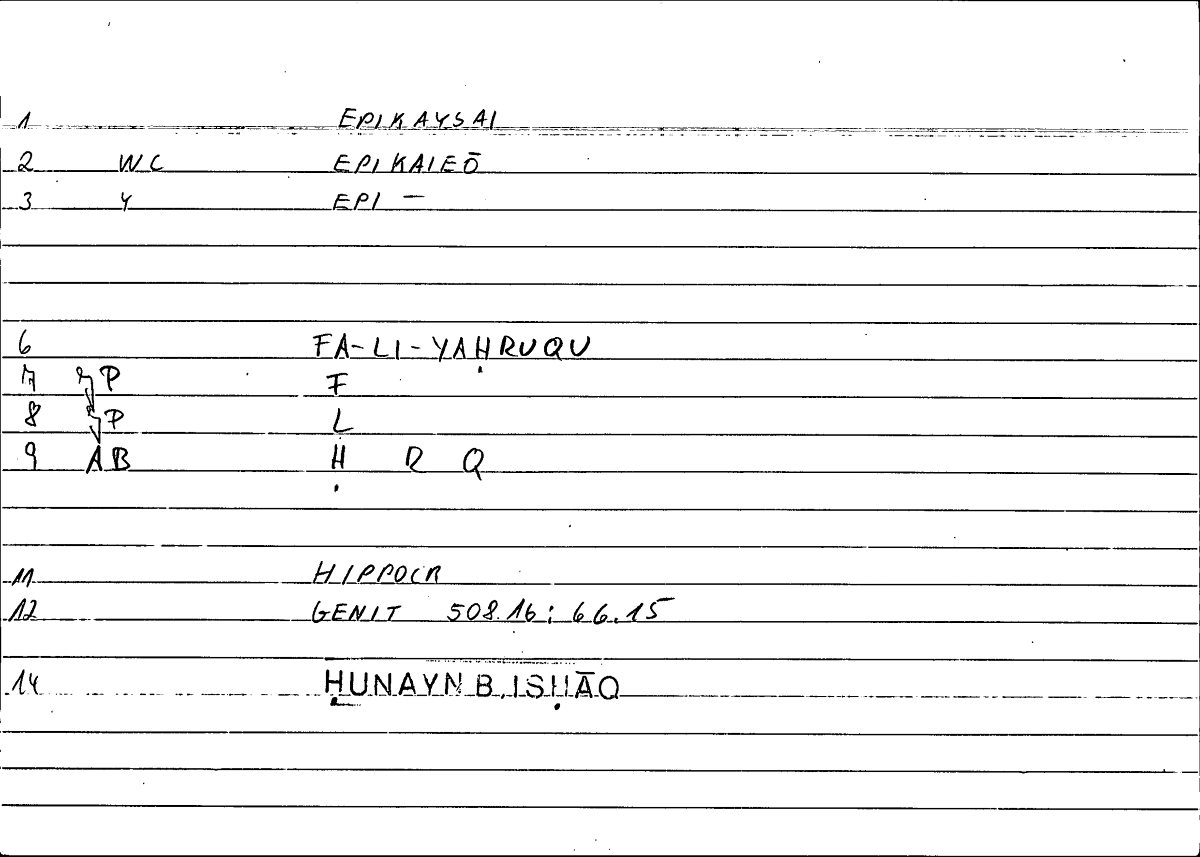 1 EPIKAYSAI
2 WC EPIKAIEŌ
3 Y EPI –
6 FA-LI-YAḤRUQU
7 P F
8 P L
9 AB Ḥ R Q
11 HIPPOCR
12 GENIT 508.16; 66.15
14 ḤUNAYN B. ISḤĀQ